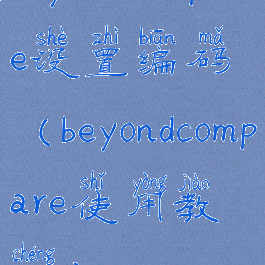 shè zhì biān mǎ
e设置编码
(beyondcomp
shǐ yòng jiàn
are使用教
chéng